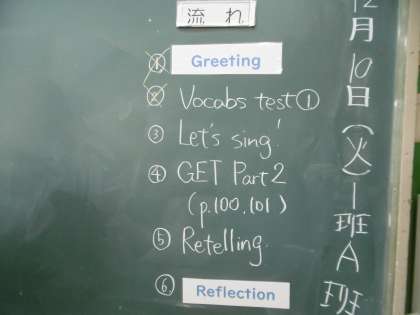 流れ
① Greeting
② Vocabs test①
③ Let's sing!
④ GET Part2
(p.100,101)
⑤ Retelling
⑥ Reflection
12月10日(火)1班A班